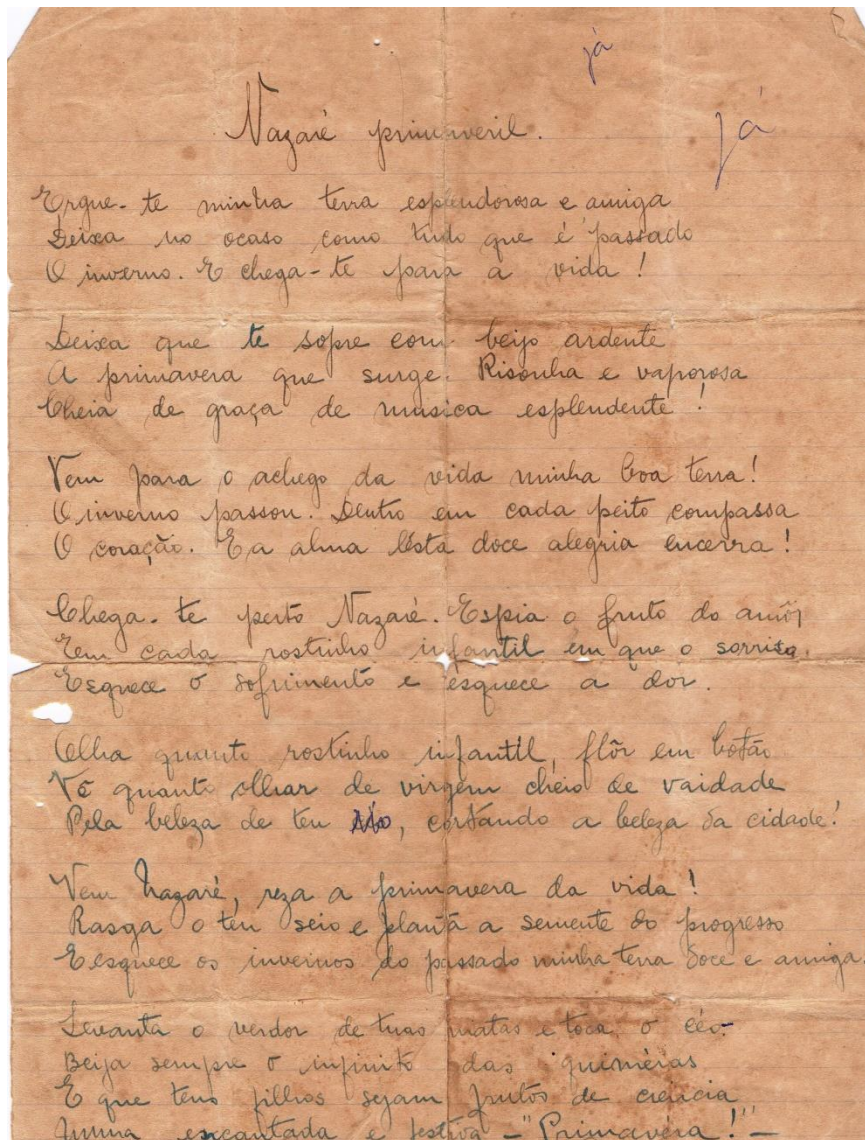 já
já
Nazaré primaveril.
Ergue-te minha terra esplendorosa e amiga
Deixa no ocaso como tudo que é passado
O inverno. E chega-te para a vida!
Deixa que te sopre com beijo ardente
A primavera que surge. Risonha e vaporosa
Cheia de graça de musica esplendente!
Vem para o achego da vida minha boa terra!
O inverno passou. Dentro em cada peito compassa
O coração. E a alma esta doce alegria encerra!
Chega-te perto Nazaré. Espia o fruto do amôr
Em cada rostinho infantil em que o sorriso
Esquece o sofrimento e esquece a dor.
Olha quanto rostinho infantil, flôr em botão
Vê quanto olhar de virgem cheio de vaidade
Pela beleza de teu Rio, cortando a beleza da cidade!
Vem Nazaré, reza a primavera da vida!
Rasga o teu seio e planta a semente do progresso
E esquece os invernos do passado minha terra doce e amiga.
Levanta o verdor de tuas matas e toca o céo
Beija sempre o infinito das quiméras
E que teus filhos sejam frutos de
Numa encantada e festiva - "Primavéra!" -